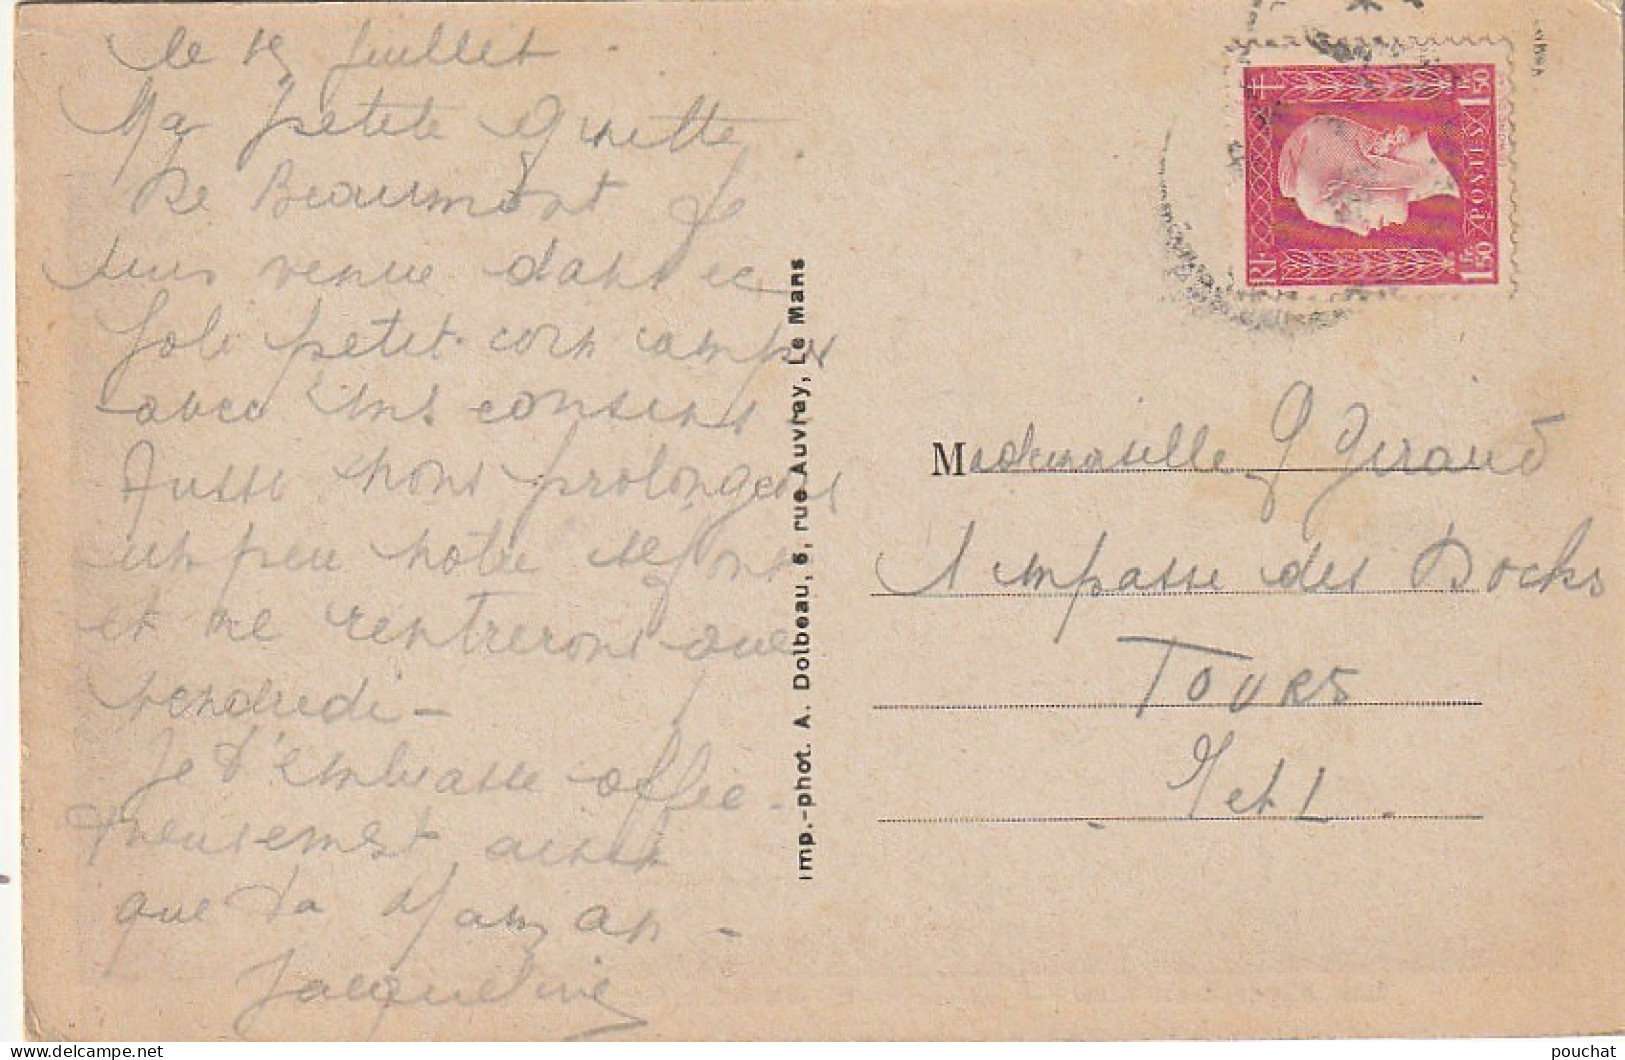 le 15 Juillet.
Ma petite Ginette
De Beaumont je
suis venue dans ce
Joli petit coin camper
avec mes cousins
Aussi nous prolongeons
un peu notre séjour
et ne rentrerons que
vendredi -
Je t'embrasse affec-
tueusement ainsi
que ta Maman -
Jacqueline
Imp.-phot. A. Dolbeau, 5, rue Auvray, Le Mans
RF
1fr50 POSTES 1fr50
Mademoiselle G Giraud
1 impasse des Docks
TOURS
I et L.
pouchat